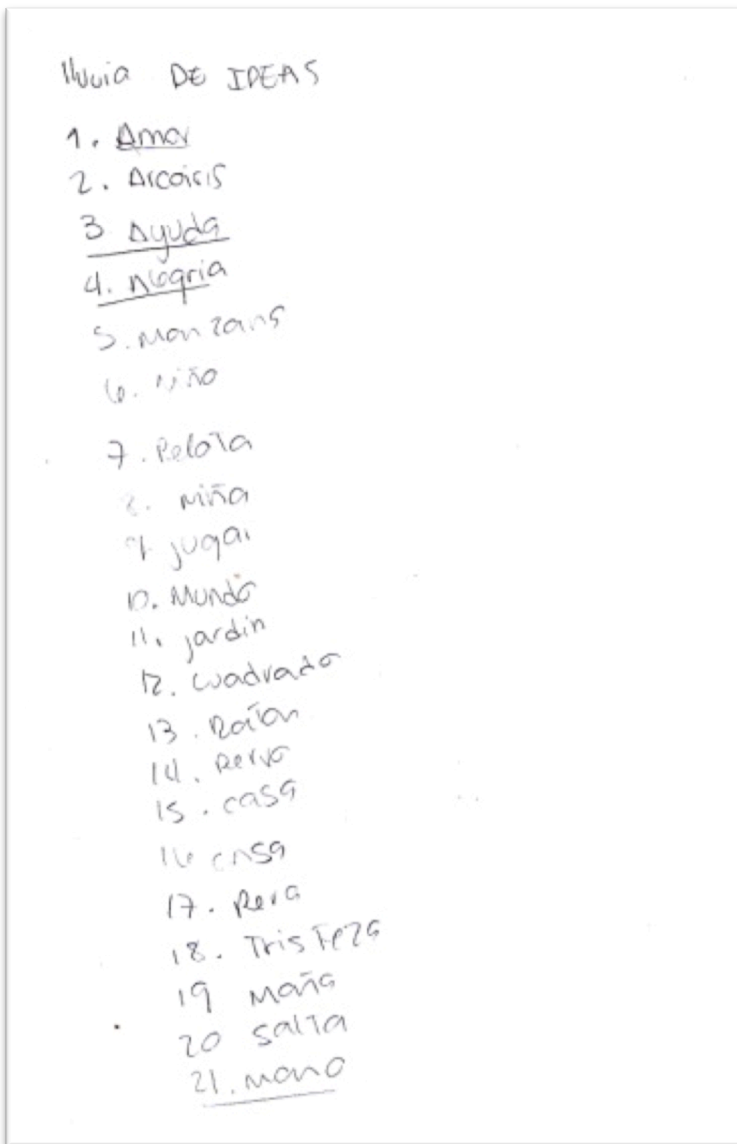 lluvia DE IDEAS
1. Amor
2. Arcoiris
3 Ayuda
4. Alegria
5. Manzana
6. niño
7. Pelota
8. niña
9 jugar
10. Mundo
11. jardin
12. cuadrado
13. Raton
14. Perro
15. casa
16 casa
17. Pera
18. Tristeza
19 Maña
20 Salta
21. mano